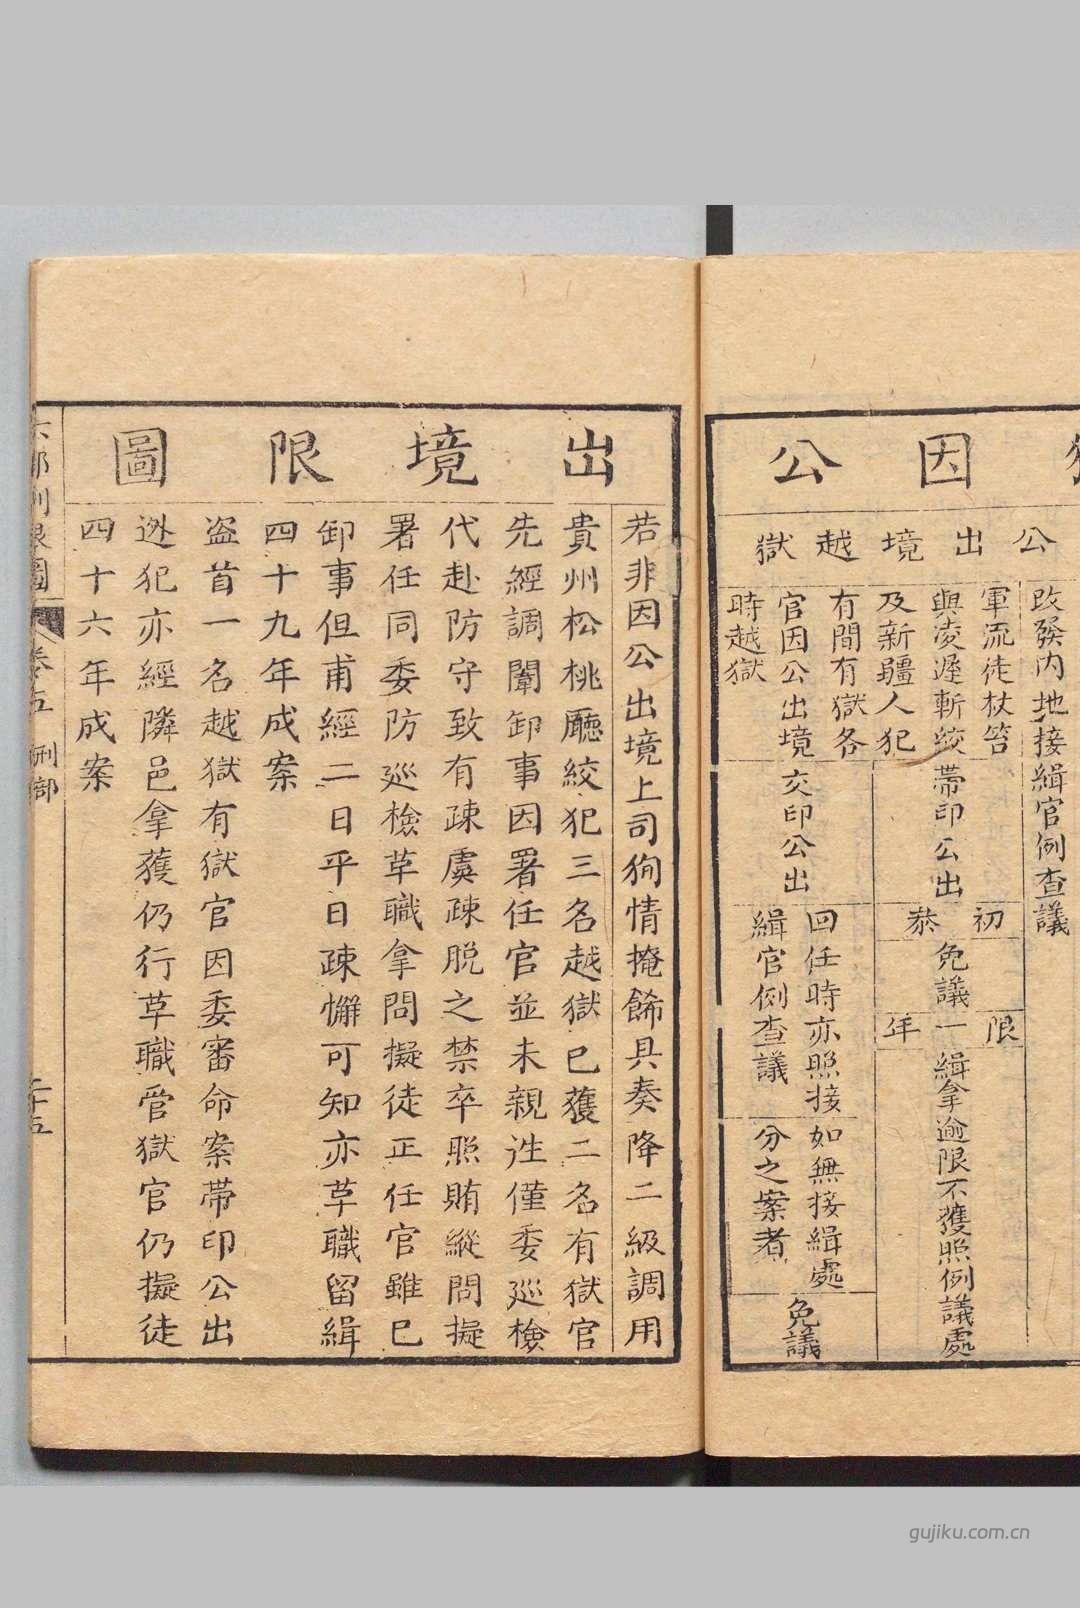 因公
公出境越獄
改發内地接緝官例查議
軍流徒杖笞
與凌遲斬絞
及新疆人犯
有間有獄各
官因公出境
時越獄
帶印公出
初叅
免議
限一年
緝拿逾限不獲照例議處
交印公出
回任時亦照接
緝官例查議
如無接緝處
分之案者
免議
出境限圖
若非因公出境上司狥情掩餙具奏降二級調用
貴州松桃廳絞犯三名越獄已獲二名有獄官
先經調闈卸事因署任官並未親往僅委巡檢
代赴防守致有疎虞疎脱之禁卒照賄縱問擬
署任同委防巡檢革職拿問擬徒正任官雖已
卸事但甫經二日平日疎懈可知亦革職留緝
四十九年成案
盗首一名越獄有獄官因委審命案帶印公出
迯犯亦經隣邑拿獲仍行革職管獄官仍擬徒
四十六年成案
卷五 刑部
二十五
gujiku.com.cn